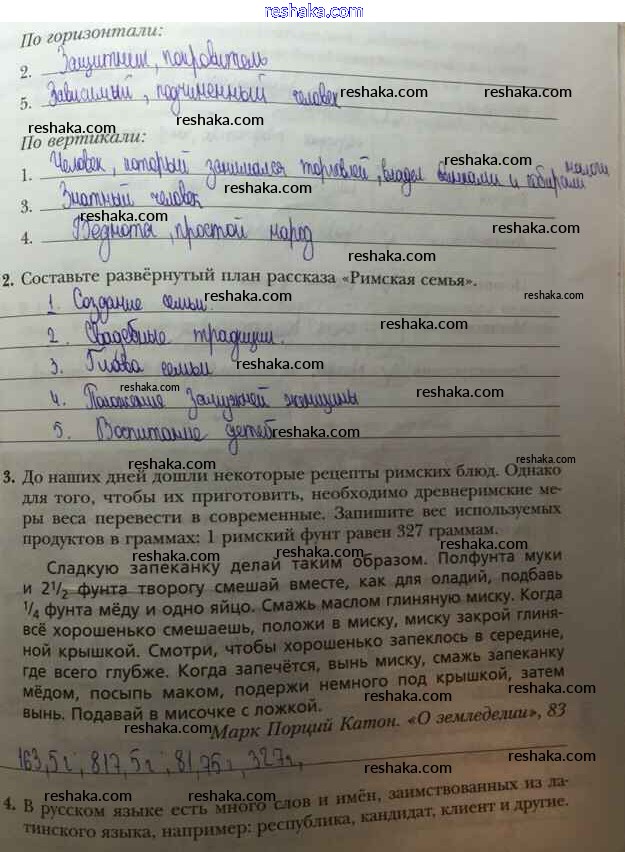 reshaka.com
По горизонтали:
2. Защитник, покровитель
5. Зависимый, подчинённый человек
По вертикали:
1. Человек, который занимался торговлей, владел банками и собирали налоги
3. Знатный человек
4. Беднота, простой народ
2. Составьте развёрнутый план рассказа «Римская семья».
1. Создание семьи.
2. Свадебные традиции.
3. Глава семьи
4. Положение замужней женщины
5. Воспитание детей
3. До наших дней дошли некоторые рецепты римских блюд. Однако
для того, чтобы их приготовить, необходимо древнеримские ме-
ры веса перевести в современные. Запишите вес используемых
продуктов в граммах: 1 римский фунт равен 327 граммам.
Сладкую запеканку делай таким образом. Полфунта муки
и 2 1/2 фунта творогу смешай вместе, как для оладий, подбавь
1/4 фунта мёду и одно яйцо. Смажь маслом глиняную миску. Когда
всё хорошенько смешаешь, положи в миску, миску закрой глиня-
ной крышкой. Смотри, чтобы хорошенько запеклось в середине,
где всего глубже. Когда запечётся, вынь миску, смажь запеканку
мёдом, посыпь маком, подержи немного под крышкой, затем
вынь. Подавай в мисочке с ложкой.
Марк Порций Катон. «О земледелии», 83
163,5 г; 817,5 г; 81,75 г; 327 г,
4. В русском языке есть много слов и имён, заимствованных из ла-
тинского языка, например: республика, кандидат, клиент и другие.